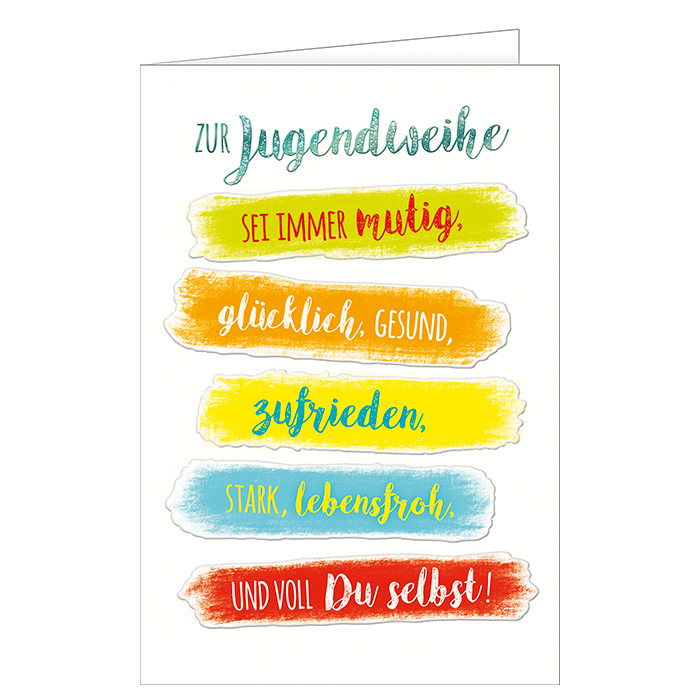 ZUR Jugendweihe
SEI IMMER mutig,
glücklich, GESUND,
zufrieden,
STARK, lebensfroh,
UND VOLL Du selbst!